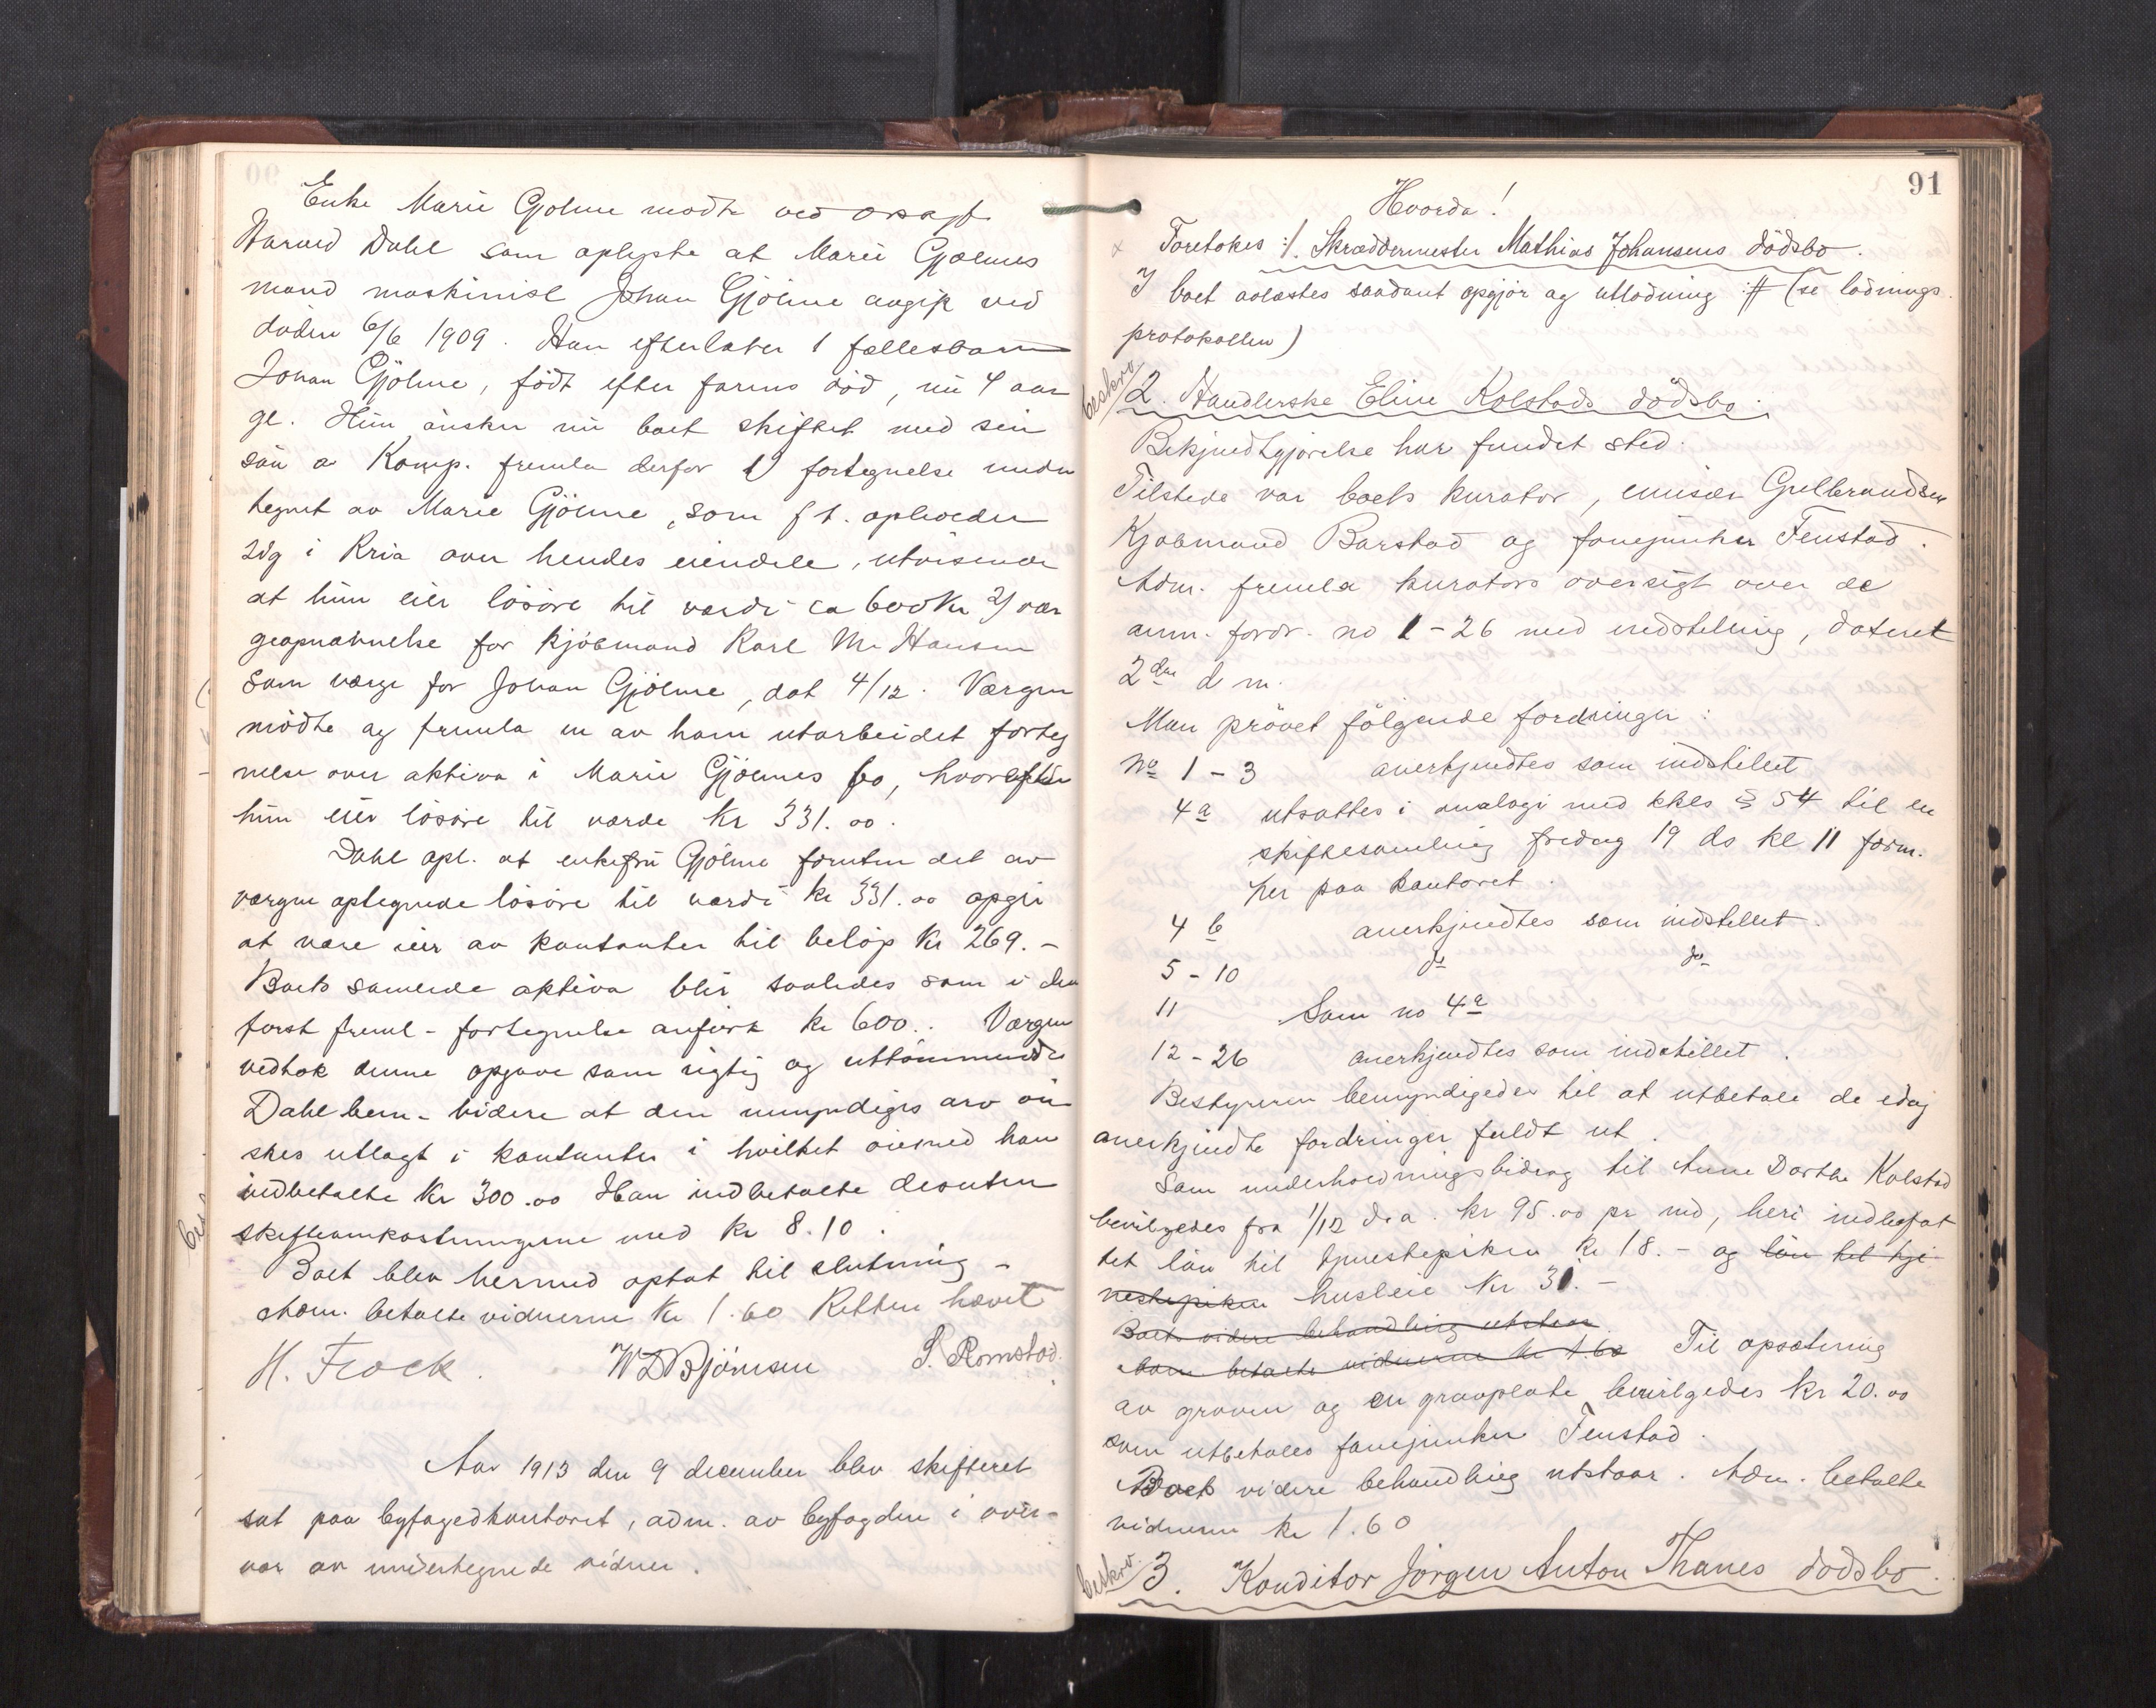 Enke Marie Gjølme mødte ved orsagf.
Harald Dahl som oplyste at Marie Gjølmes
mand maskinist Johan Gjölme avgik ved
døden 6/6 1909. Han efterlater 1 fællesbarn
Johan Gjölme, födt efter farens död, nu 4 aar
gl. Hun önsker nu boet skiftet med sin
sön a Komp. fremla derfor 1) fortegnelse under
tegnet av Marie Gjölme, som f t. opholder
sig i Kria over hendes eiendele, utvisende
at hun eier lösöre til værdi ca 600 Kr 2) vær
geopnævnelse for kjöbmand Karl M. Hansen
som værge for Johan Gjölme, dat 4/12. Værgen
mödte og fremla en av ham utarbeidet forteg
nelse over aktiva i Marie Gjölmes bo, hvorefter
hun eier lösöre til værde Kr 331.00.
Dahl opl. at enkefru Gjölme foruten det av
værgen optegnede lösöre til værdi kr 331.00 opgir
at være eier av kontanter til belöp Kr 269.-
Boets samlede aktiva blir saaledes som i den
först freml- fortegnelse anfört kr 600.. Værgen
vedtok denne opgave som rigtig og uttömmende
Dahl bem- videre at den umyndiges arv ön
skes utlagt i kontanter i hvilket öiemed han
indbetalte Kr 300.00 Han indbetalte desuten
skifteomkostningerne med kr 8.10.
Boet blev hermed optat til slutning -
Adm. betalte vidnerne Kr 1.60 Retten hævet
H. Frock. W D Björnsen S. Romstad.
Aar 1913 den 9 december blev skifteret
sat paa byfogedkontoret, adm. av byfogden i over-
vær av undertegnede vidner.
91
Hvorda!
Foretokes :/. Skræddermester Mathias Johansens dödsbo.
I boet avlæstes saadant opgjör og utlodning # (se lodnings
protokollen)
beskrv
2. Handlerske Eline Kolstads dödsbo.
Bekjendtgjörelse har fundet sted.
Tilstede var boets kurator, emisær Gulbrandsen
Kjöbmand Barstad og fanejunker Fenstad.
Adm. fremla kurators oversigt over de
anm. fordr. no 1-26 med indstilling, dateret
2den d m.
Man prövet fölgende fordringer:
No 1-3 anerkjendtes som indstillet
4a utsattes i analogi med kkls § 54 til en
skiftesamling fredag 19 ds kl 11 form.
her paa kontoret.
4 b anerkjendtes som indstillet.
5-10 do do
11 Som no 4a
12-26 anerkjendtes som indstillet.
Bestyreren bemyndigedes til at utbetale de idag
anerkjendte fordringer fuldt ut.
Som underholdningsbidrag til Anne Dorthe Kolstad
bevilgedes fra 1/12 d.a. kr 95.00 pr md, heri indbefat
tet lön til tjenestepiken kr 18.- og lön til tje
nestepiken husleie Kr 31.-
Boets videre behandling utstaar.
Adm betalte vidnerne kr 1.60 Til opsætning
av graven og en gravplate bevilgedes kr 20.00
som utbetales fanejunker Fenstad.
Boets videre behandling utstaar. Adm. betalte
vidnerne kr 1.60
beskrv.
3. Konditor Jörgen Anton Thanes dödsbo.